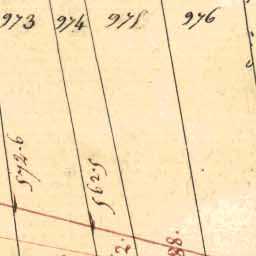 973 974 975 976
572.6
562.5
2.
88.